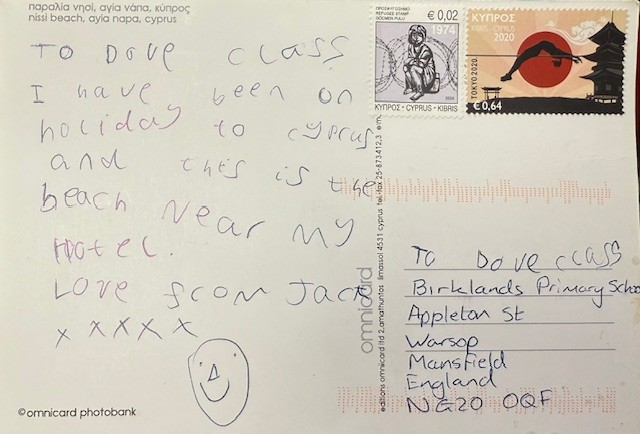 παραλία νησί, αγία νάπα, κύπρος
nissi beach, ayia napa, cyprus
TO Dove class
I have been on
holiday to cyprus
and this is the
beach Near my
Hotel.
Love from Jack
x x x x x
©omnicard photobank
omnicard
editions omnicard ltd 2, amathuntos limassol 4531 cyprus tel-fax 25-873412,3
ΠΡΟΣΦΥΓΟΣΗΜΟ
REFUGEE STAMP
GÖÇMEN PULU
€ 0,02
1974
ΚΥΠΡΟΣ • CYPRUS • KIBRIS
ΚΥΠΡΟΣ
KIBRIS • CYPRUS
2020
TOKYO 2020
€ 0,64
To Dove class
Birklands Primary Schoo
Appleton St
Warsop
Mansfield
England
NG20 0QF